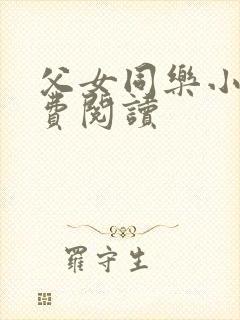 父女同樂小
費閱讀
羅守生